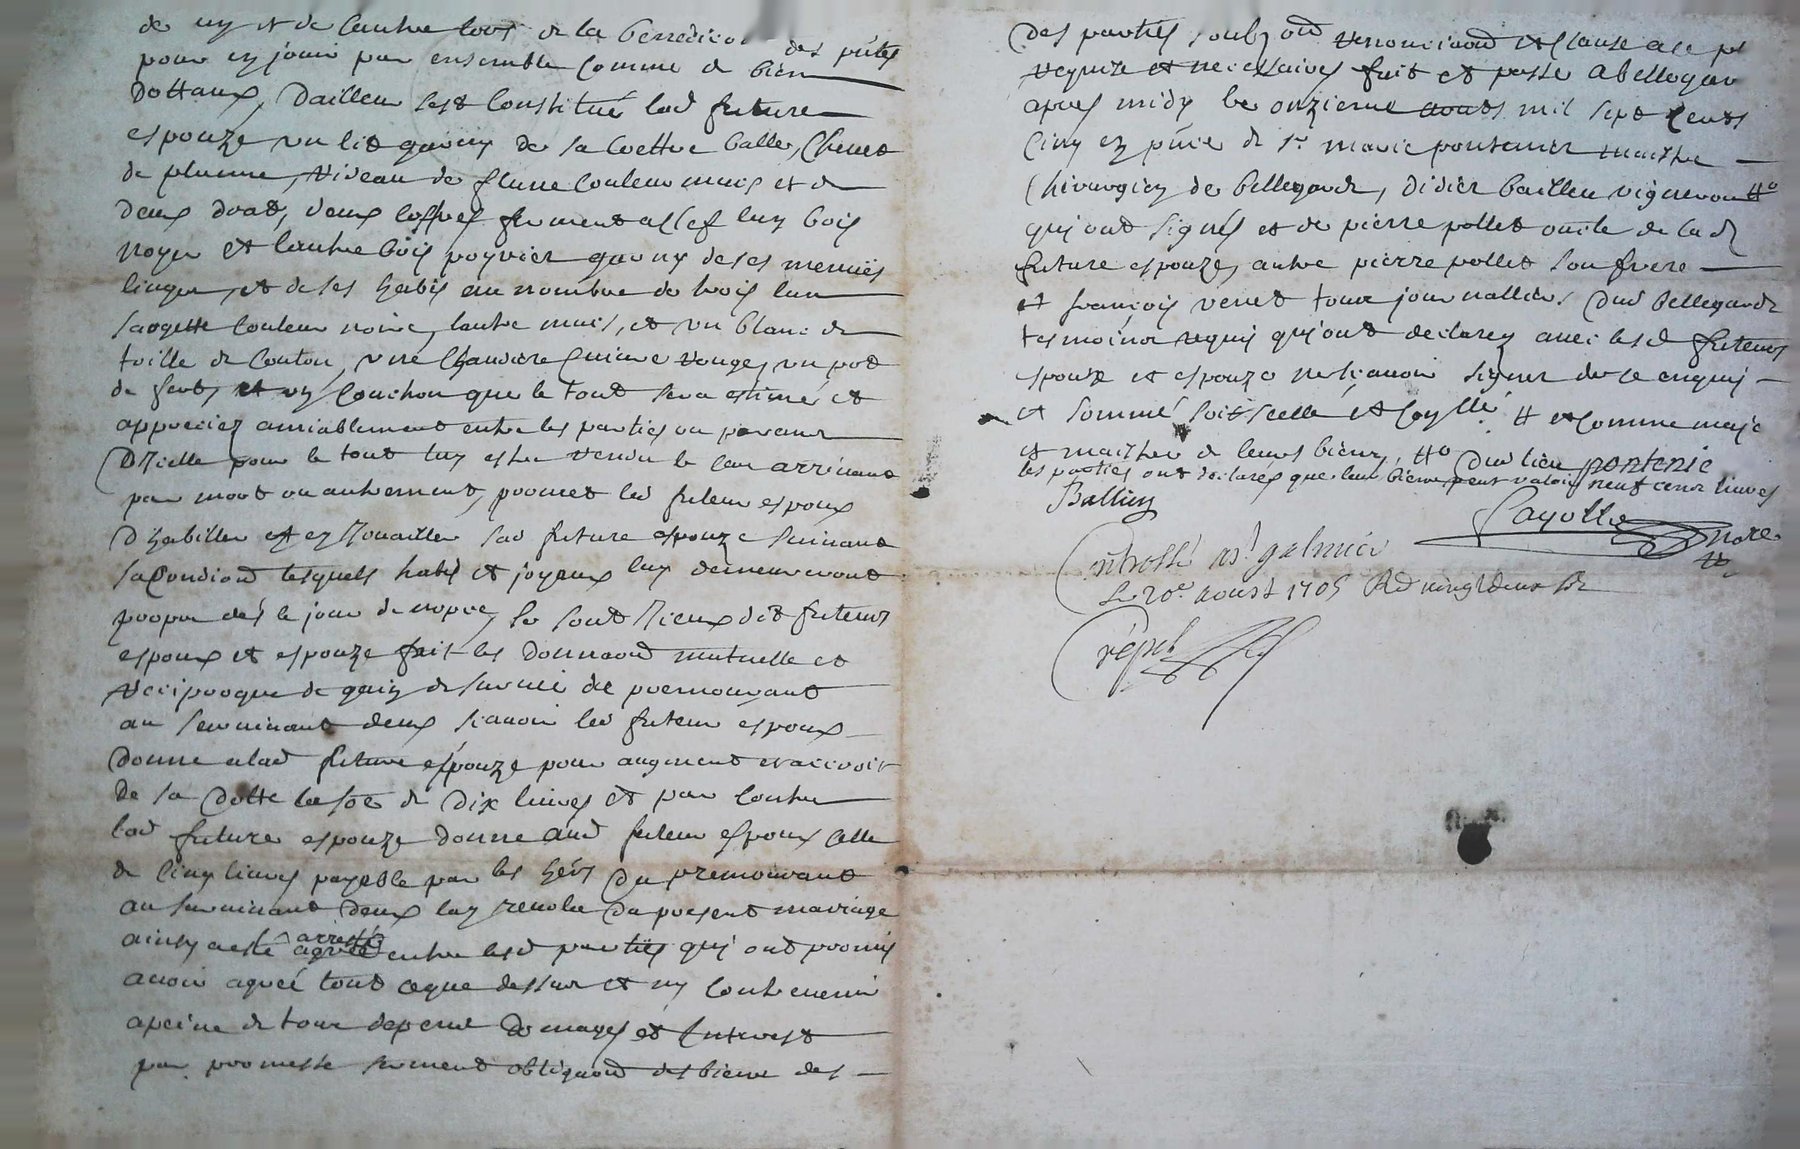 de uy et de lautre lors de la benedicõn des pñtes
pour en jouir par ensemble comme de bien
dottaux, dailleur sest constitué lad future
espouze un lit garny de sa coettre baller, chevet
de plume, rideau de flene couleur muse et de
deux drat, deux coffres ferment a clef lun bois
noyer et lautre bois poyrier garny de ses menues
linger, et de ses habis au nombre de trois lun
sargette couleur noire, lautre muse, et un blanc de
toille de couton, une chaudiere cuivre rouge, un pot
de fert, et un couchon que le tout sera estimé et
apprecier amiablement entre les parties ou parans
dicelle pour le tout luy estre rendu le cas arrivant
par mort ou autrement, promet led futeur espoux
dhabiller et enjouailler lad future espouze suivant
sa condiaon lesquels habis et joyeaux luy demeureront
propre des le jour de nopce, se sont lieux dit futeurs
espoux et espouze fait les donnaon mutuelle et
reciproque de gain de survie de premourant
au survivant deux scavoir led futeur espoux
donne alad future espouze pour augment et accroit
de sa dotte la soe de dix livres et par contre
lad future espouze donne aud futeur espoux celle
de cinq livres payable par les hérs du premourant
au survivant deux lan revolu du present mariage
ainsy a esté arresté agréé entre lesd parties qui ont promis
avoir agreé tout ce que dessus et ny contrevenir
a peine de tous depens domages et interest
par promesse serment obligaon des biens des
des parties soubzon renonciaon et clause a ce
requise et necessaires fait et passé a bellegar
apres midy le onzieme aoust mil sept cents
cinq en pñce de sr marie pontenier maithre
chirurgien de bellegarde, didier baillieu vigneron #o
qui ont signés et de pierre pollet oncle de lad
future espouze, autre pierre pollet son frere
et francois venet tous journallier dud bellegarde
tesmoins requis qui ont declarez avec lesd futeurs
espoux et espouze ne scavoir signer de ce enquis
et sommé soit scellé et #o et comme maje
et maithre de leurs biens, #o dud lieu pontenie
les parties ont declarés que leur biens peut valoir neuf cens livres
Ballieu
Cayolle nore
Controllé a st galmier
Le 20e aoust 1705 Rd vingt deux s
Crépet